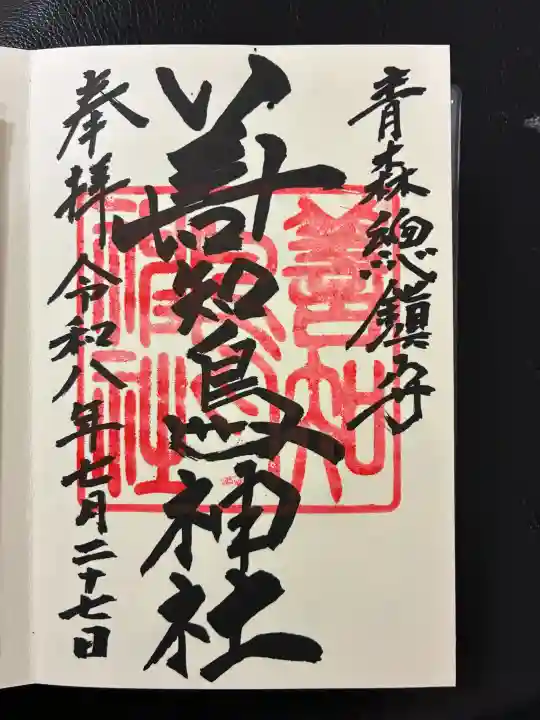 青森総鎮守
善知鳥神社
奉拝 令和八年七月二十七日
善知鳥神社